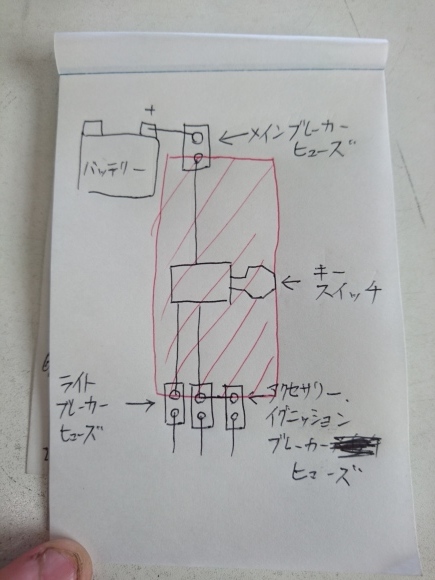 +
バッテリー
メインブレーカー
ヒューズ
キー
スイッチ
ライト
ブレーカー
ヒューズ
アクセサリー、
イグニッション
ブレーカー
ヒューズ